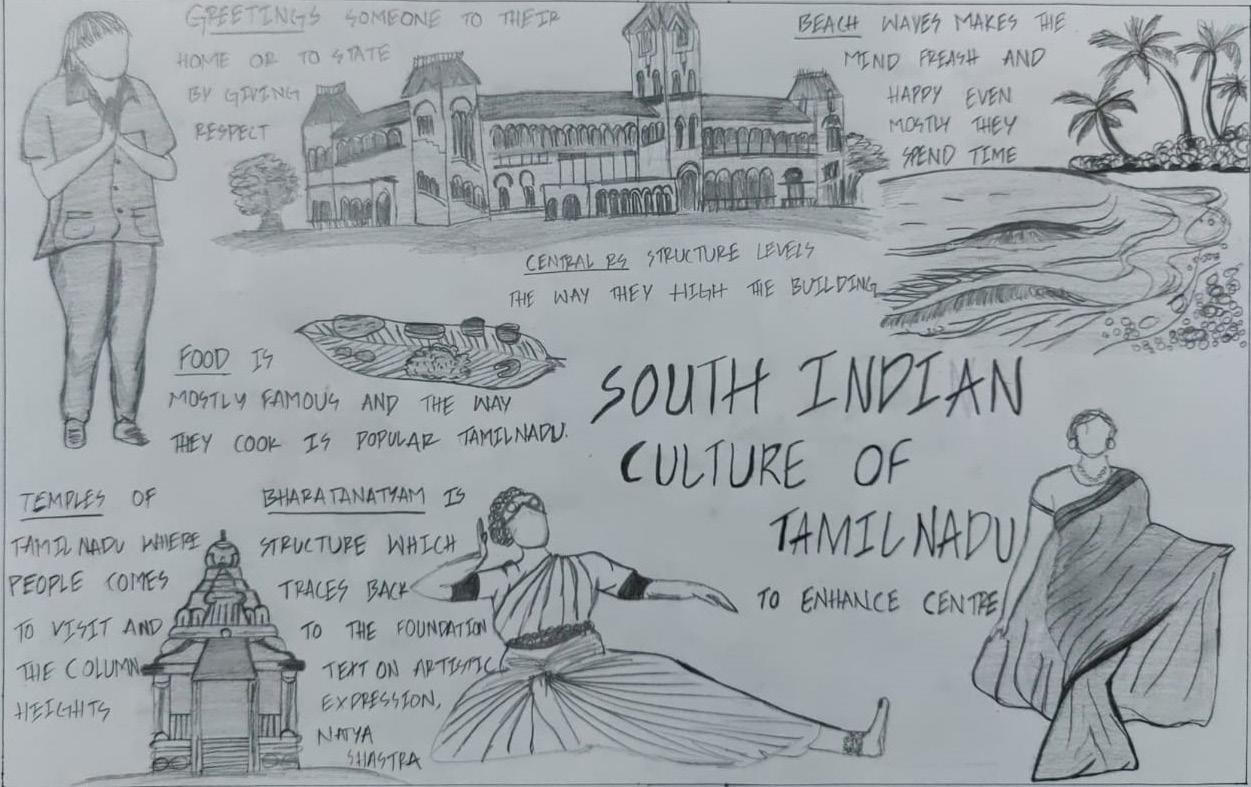 GREETINGS SOMEONE TO THEIR
HOME OR TO STATE
BY GIVING
RESPECT
BEACH WAVES MAKES THE
MIND FREASH AND
HAPPY EVEN
MOSTLY THEY
SPEND TIME
CENTRAL RS STRUCTURE LEVELS
THE WAY THEY HIGH THE BUILDING
FOOD IS
MOSTLY FAMOUS AND THE WAY
THEY COOK IS POPULAR TAMILNADU.
SOUTH INDIAN
CULTURE OF
TAMILNADU
TO ENHANCE CENTRE
TEMPLES OF
TAMILNADU WHERE
PEOPLE COMES
TO VISIT AND
THE COLUMN
HEIGHTS
BHARATANATYAM IS
STRUCTURE WHICH
TRACES BACK
TO THE FOUNDATION
TEXT ON ARTISTIC
EXPRESSION,
NATYA
SHASTRA